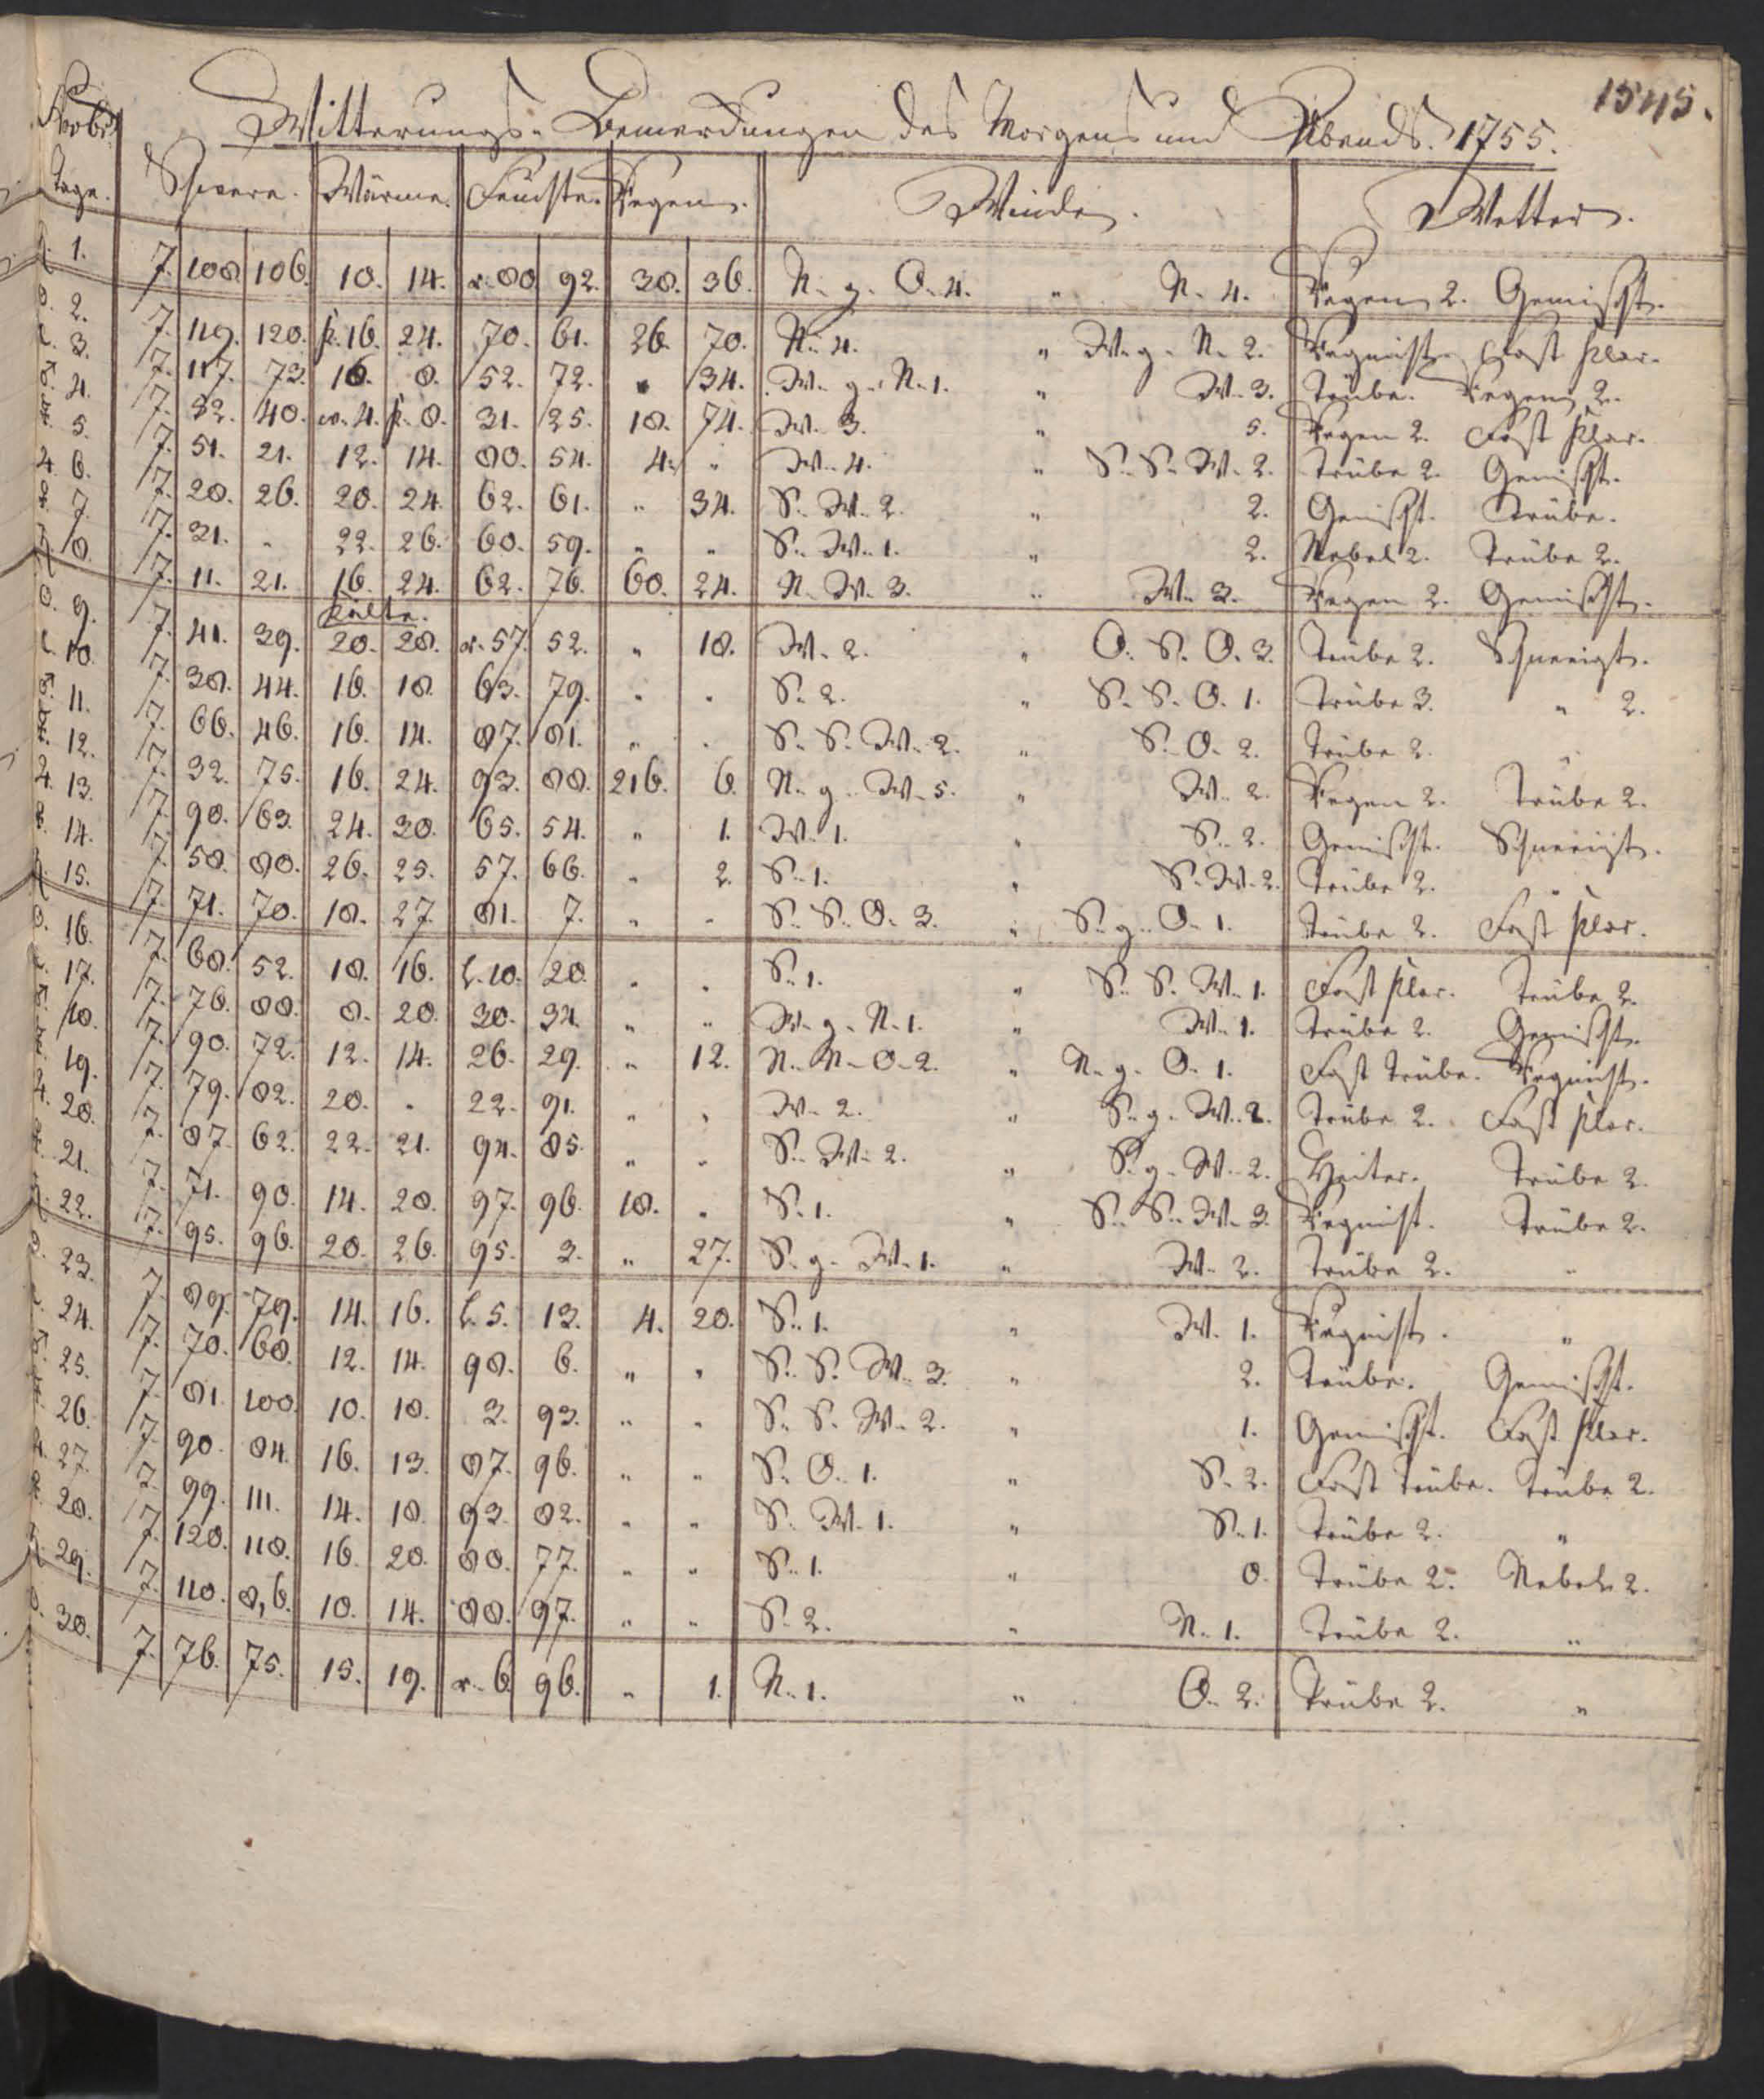 1545.
Novbr. Witterungs-Bemerckungen des Morgens und Abends. 1755.
Tage. Schwere. Wärme. Feuchte. Regen. Winde. Wetter.
1. 7. 108 106. 10. 14. r. 80 92. 38. 36. N. g. O. 4. " N. 4. Regen 2. Gemischt.
2. 7. 119. 120. k. 16. 24. 70. 61. 26. 70. N. 4. " W. g. N. 2. Regnicht. Fast klar.
3. 7. 117. 73. 16. 8. 52. 72. " 34. W. g. N. 1. " W. 3. Trübe. Regen 2.
4. 7. 32. 40. w. 4. k. 8. 31. 25. 18. 74. W. 3. " 5. Regen 2. Fast klar.
5. 7. 51. 21. 12. 14. 80. 54. 4. " W. 4. " S. S. W. 2. Trübe 2. Gemischt.
6. 7. 28. 26. 20. 24. 62. 61. " 34. S. W. 2. " 2. Gemischt. Trübe.
7. 7. 31. " 22. 26. 60. 59. " " S. W. 1. " 2. Nebel 2. Trübe 2.
8. 7. 11. 21. 16. 24. 62. 76. 60. 24. N. W. 3. " W. 3. Regen 2. Gemischt.
Kälte.
9. 7. 41. 39. 20. 28. r. 57. 52. " 18. W. 2. " O. S. O. 3. Trübe 2. Schneeigt.
10. 7. 38. 44. 16. 18. 63. 79. " " S. 2. " S. S. O. 1. Trübe 3. " 2.
11. 7. 66. 46. 16. 14. 87. 81. " " S. S. W. 2. " S. O. 2. Trübe 2. "
12. 7. 32. 75. 16. 24. 93. 88. 216. 6. N. g. W. 5. " W. 2. Regen 2. Trübe 2.
13. 7. 90. 63. 24. 30. 65. 54. " 1. W. 1. " S. 2. Gemischt. Schneeigt.
14. 7. 58. 80. 26. 25. 57. 66. " 2. S. 1. " S. W. 2. Trübe 2. "
15. 7. 71. 70. 18. 27. 81. 7. " " S. S. O. 3. " S. g. O. 1. Trübe 2. Fast klar.
16. 7. 68. 52. 18. 16. l. 10. 20. " " S. 1. " S. S. W. 1. Fast klar. Trübe 2.
17. 7. 76. 88. 8. 20. 30. 34. " " W. g. N. 1. " W. 1. Trübe 2. Gemischt.
18. 7. 90. 72. 12. 14. 26. 29. " 12. N. N. O. 2. " N. g. O. 1. Fast trübe. Regnicht.
19. 7. 79. 82. 20. " 22. 91. " " W. 2. " S. g. W. 2. Trübe 2. Fast klar.
20. 7. 87. 62. 22. 21. 94. 85. " " S. W. 2. " S. g. W. 2. Heiter. Trübe 2.
21. 7. 71. 90. 14. 20. 97. 96. 18. " S. 1. " S. S. W. 3. Regnicht. Trübe 2.
22. 7. 95. 96. 20. 26. 95. 3. " 27. S. g. W. 1. " W. 2. Trübe 2. "
23. 7. 89. 79. 14. 16. l. 5. 13. 4. 20. S. 1. " W. 1. Regnicht. "
24. 7. 70. 68. 12. 14. 98. 6. " " S. S. W. 3. " 2. Trübe. Gemischt.
25. 7. 81. 100. 10. 18. 3. 93. " " S. S. W. 2. " 1. Gemischt. Fast klar.
26. 7. 90. 84. 16. 13. 87. 96. " " S. O. 1. " S. 2. Fast trübe. Trübe 2.
27. 7. 99. 111. 14. 18. 93. 82. " " S. W. 1. " S. 1. Trübe 2. "
28. 7. 120. 118. 16. 20. 80. 77. " " S. 1. " 0. Trübe 2. Nebel 2.
29. 7. 110. 8,6. 10. 14. 88. 97. " " S. 2. " N. 1. Trübe 2. "
30. 7. 76. 75. 15. 19. r. 6 96. " 1. N. 1. " O. 2. Trübe 2. "